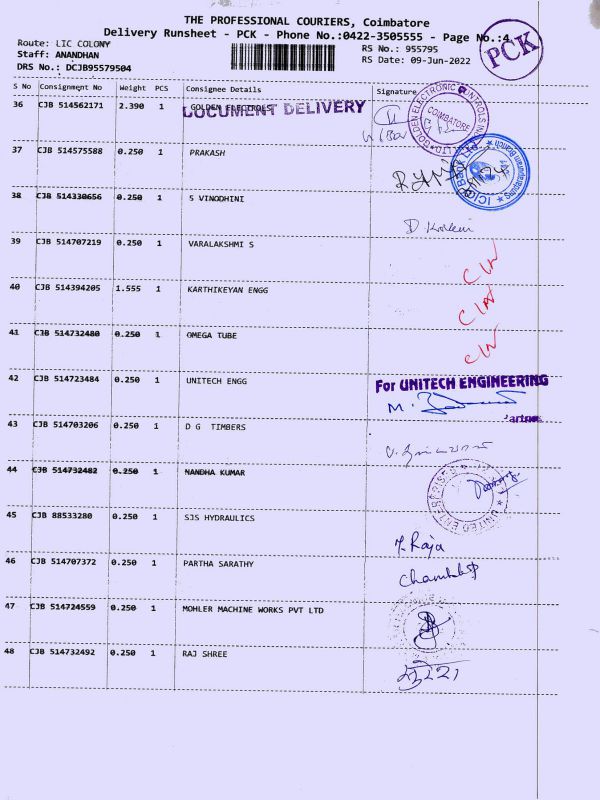 THE PROFESSIONAL COURIERS, Coimbatore
Delivery Runsheet - PCK - Phone No.:0422-3505555 - Page No.:4
Route: LIC COLONY
Staff: ANANDHAN
DRS No.: DCJB95579504
RS No.: 955795
RS Date: 09-Jun-2022
PCK
S No Consignment No Weight PCS Consignee Details Signature
36 CJB 514562171 2.390 1 GOLDEN ELECTROLS
DOCUMENT DELIVERY
GOLDEN ELECTRONIC CONTROLS
COIMBATORE
37 CJB 514575588 0.250 1 PRAKASH
ICICI Bank Ltd
38 CJB 514330656 0.250 1 S VINODHINI
39 CJB 514707219 0.250 1 VARALAKSHMI S
40 CJB 514394205 1.555 1 KARTHIKEYAN ENGG
41 CJB 514732480 0.250 1 OMEGA TUBE
42 CJB 514723484 0.250 1 UNITECH ENGG
For UNITECH ENGINEERING
artner
43 CJB 514703206 0.250 1 D G TIMBERS
44 CJB 514732482 0.250 1 NANDHA KUMAR
UNITED ENTERPRISES
45 CJB 88533280 0.250 1 SJS HYDRAULICS
Raja
46 CJB 514707372 0.250 1 PARTHA SARATHY
47 CJB 514724559 0.250 1 MOHLER MACHINE WORKS PVT LTD
48 CJB 514732492 0.250 1 RAJ SHREE